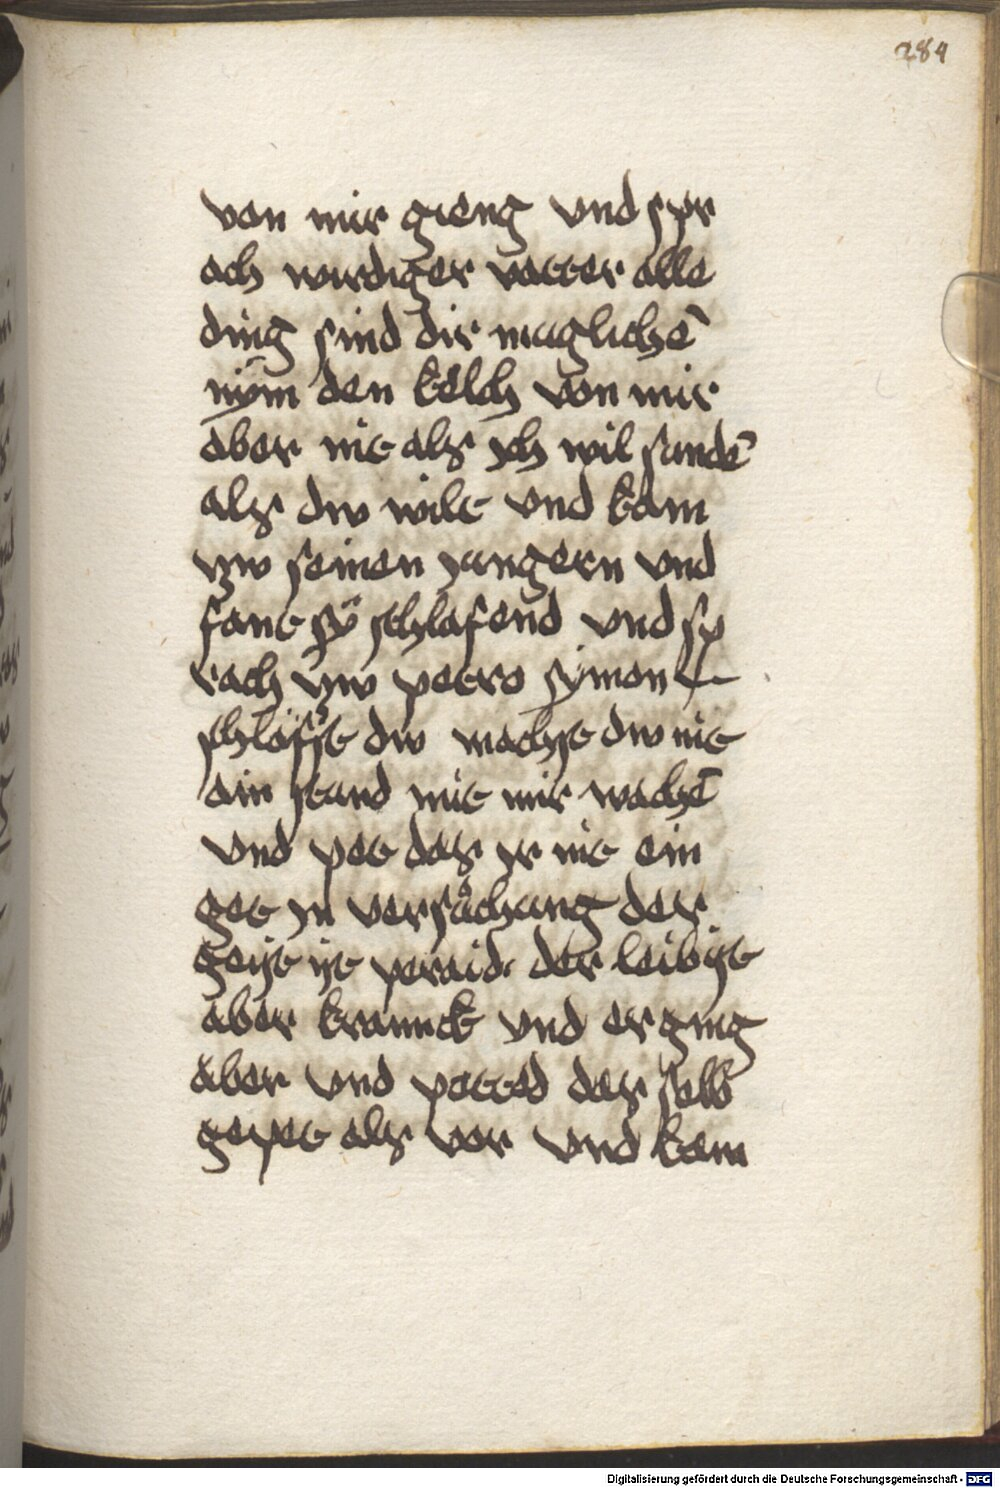 284
von mir gieng vnd spr
ach wirdiger vatter alle
ding sind dir muglichē
nȳm den kelch von mir
aber nit alz ych wil sundē
alz dw wilt vnd kam
zw seinen yungern vnd
fant sÿ schlafend vnd sp
rach zw petro sÿmon
schläffst dw machst dw nit
ain stund mit mir wachē
vnd pet daz yr nit ein
get yn versůchung der
geist ist peraid der leib ist
aber kranck vnd er ging
aber vnd petted daz selb
gepet alz vor vnd kam
Digitalisierung gefördert durch die Deutsche Forschungsgemeinschaft - DFG